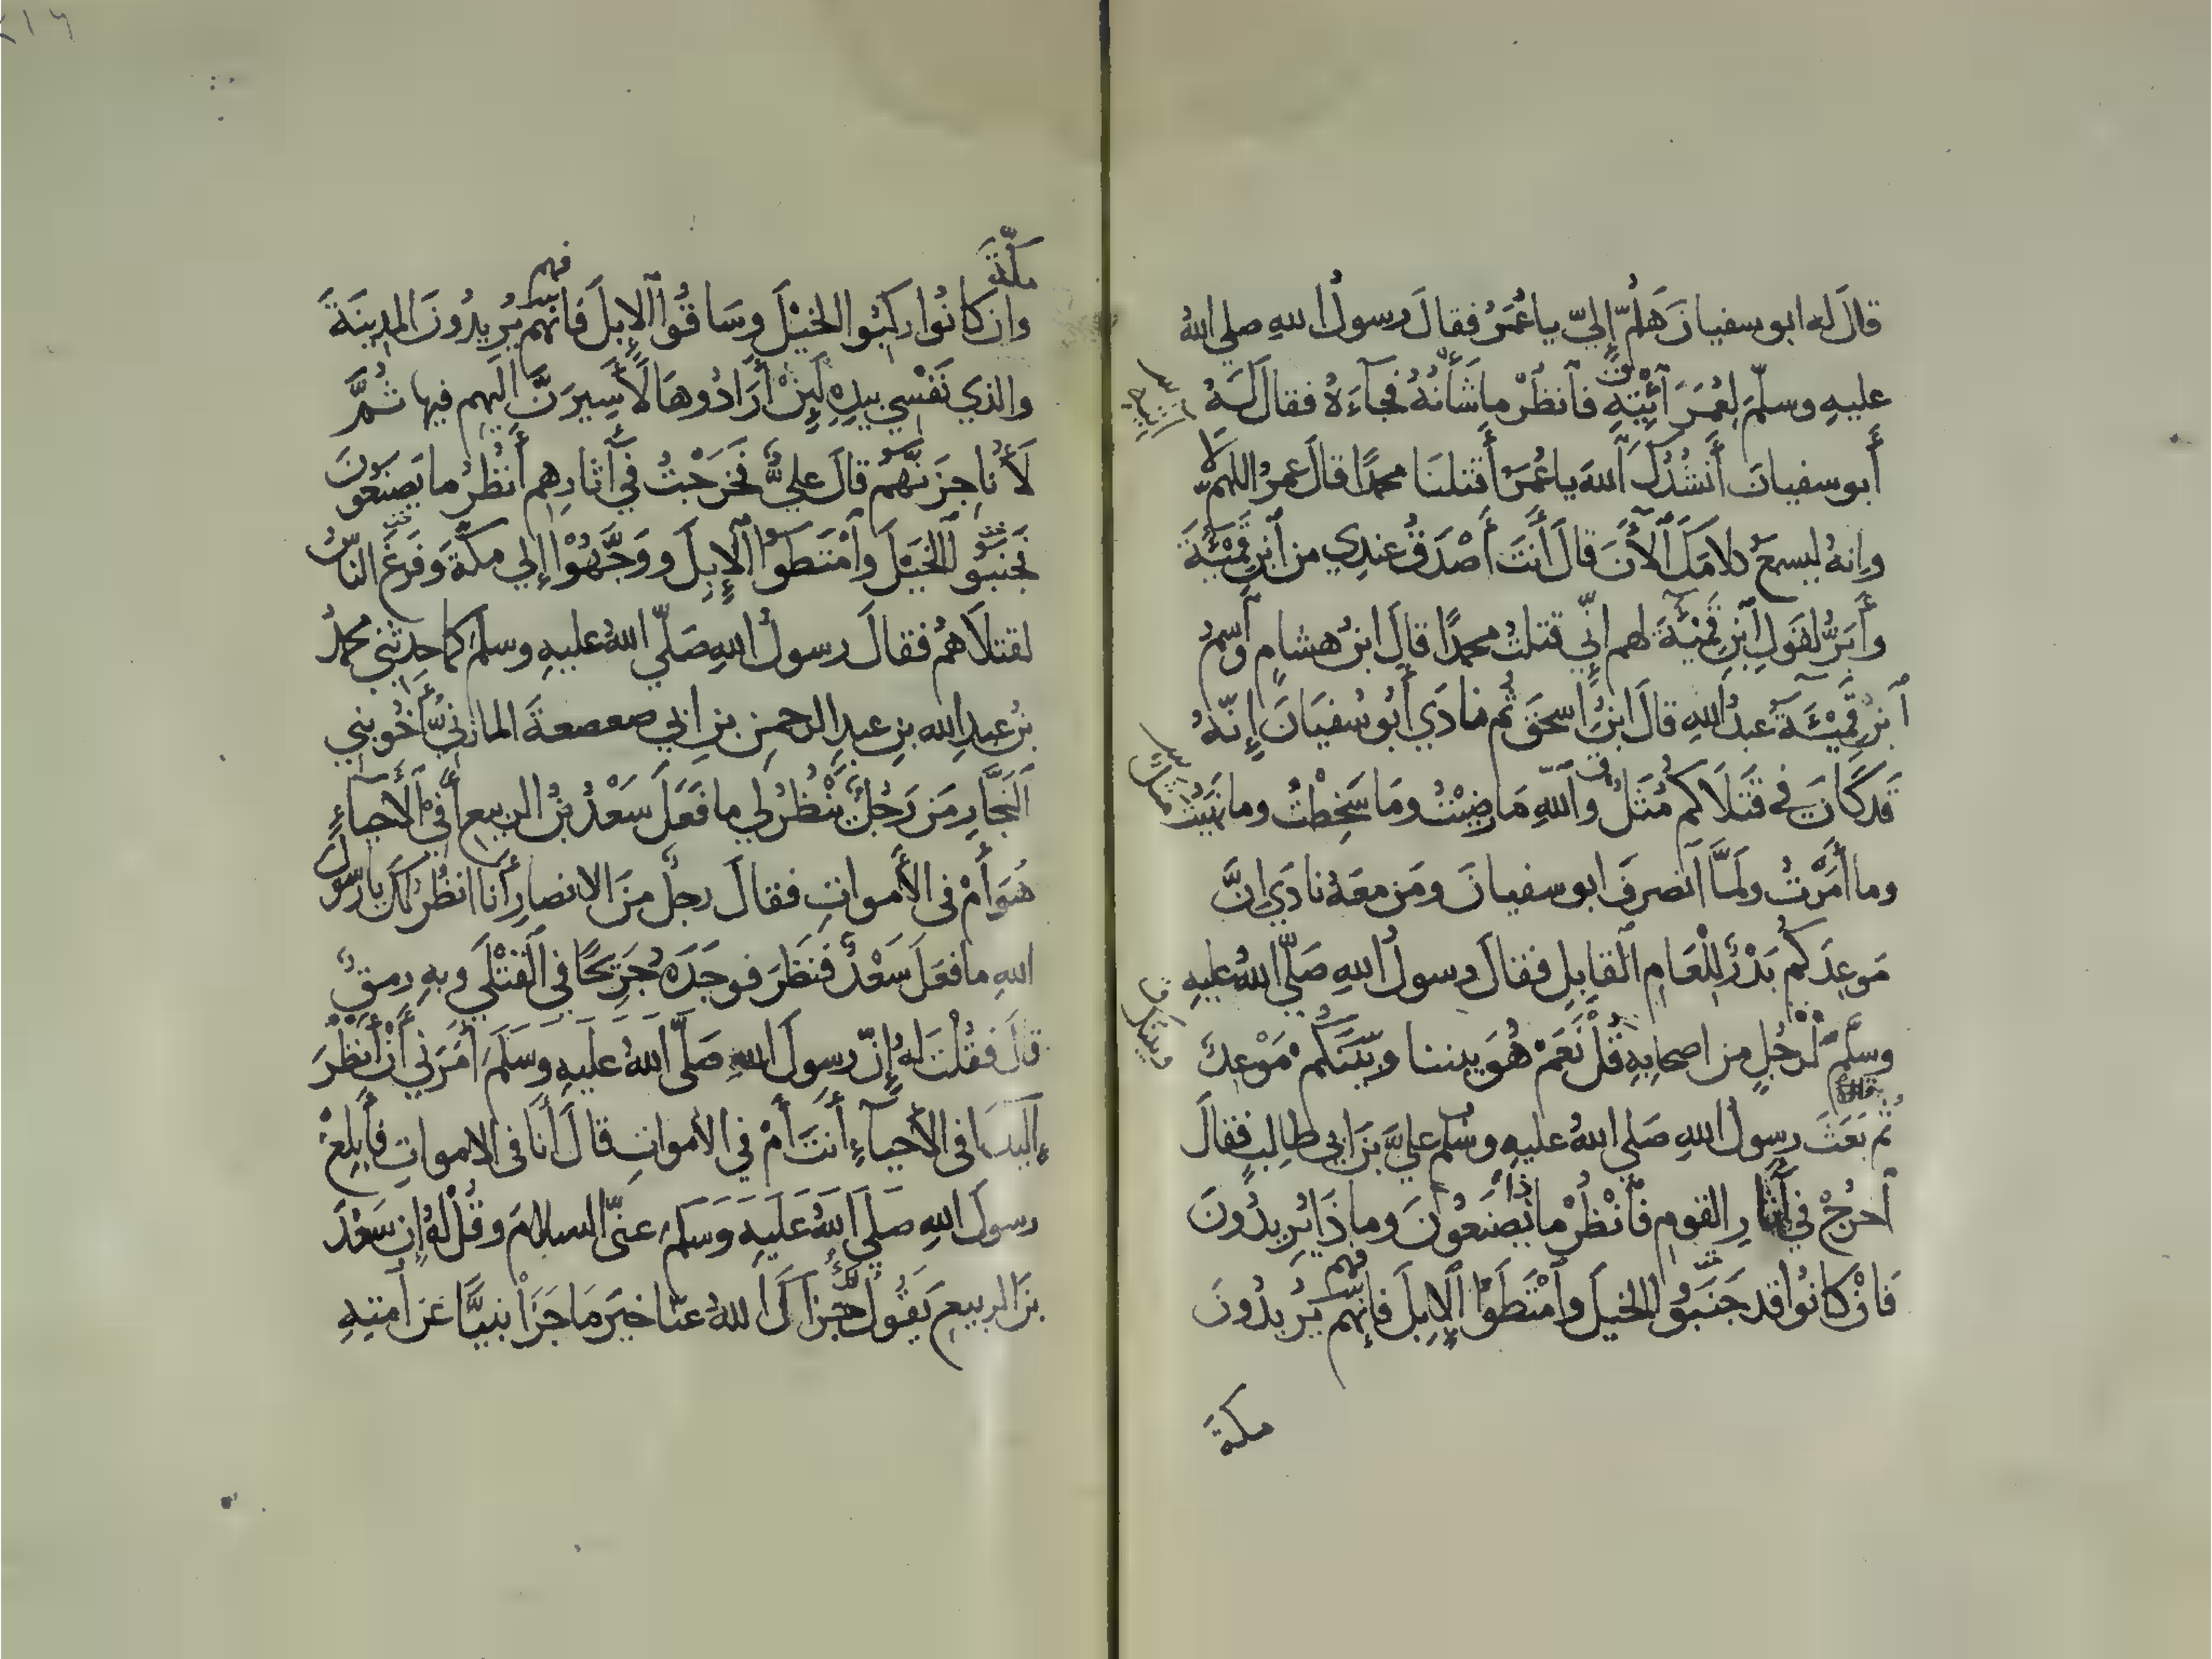 قالَ له ابو سفيانَ هَلُمَّ إليّ يا عُمَرُ فقالَ رسولُ اللهِ صلي اللهُ
عليهِ وسلّمَ لِعُمَرَ ٱئْتِهِ فٱنظُرْ ما شَأْنُهُ فجآءَهُ فقالَ لَهُ
أبو سفيانَ أَنشُدُكَ ٱللهَ يا عُمَرُ أَقتلنَا محمدًا قالَ عمرُ اللهمّ لا
وإنهُ ليسمعُ كلامَكَ ٱلْأَنَ قالَ أَنتَ أَصْدَقُ عندِي من ٱبنِ قَمِئَةَ
وأَبَرُّ لقَولِ ٱبنِ قَمِئَةَ لهم إنّي قتلتُ محمدًا قالَ ابنُ هشامٍ وٱسمُ
ٱبنِ قَمِيْئَةَ عبدُ اللهِ قالَ ابنُ اسحقَ ثُم نادَي أَبُو سُفيَانَ إِنّهُ
قَد كَانَ في قَتلَاكم مُثَلٌ وٱللهِ مَا رضِيْتُ ومَا سَخِطْتُ وما نَهَيْتُ
وما أَمَرْتُ ولمَّا ٱنصرفَ ابو سفيانَ ومَن معَهُ نادَي إنَّ
مَوعِدَكُم بَدْرٌ لِلْعَامِ ٱلقابِلِ فقالَ رسولُ اللهِ صَلّي اللهُ عليهِ
وسلّمَ لرَجُلٍ من اصحابِهِ قُلْ نَعَمْ هُوَ بيننا وبَيْنَكُم مَوْعِدٌ
ثم بَعَثَ رسولُ اللهِ صَلي اللهُ عليهِ وسلّم عليَّ بنَ ابي طالبٍ فقالَ
ٱخرُجْ في آثارِ القومِ فٱنْظُرْ ماذا يَصنَعُونَ وما ذَا يُرِيدُونَ
فَانْ كَانُوا قد جَنَّبُوا الخيلَ وٱمْتَطَوْا ٱلإِبِلَ فإنهم يُرِيدُونَ
مكة
مكّةَ
وإن كانُوا ركبُوا الخيْلَ وسَاقُوا ٱلإبلَ فانّهم يُرِيدُونَ المدِينَةَ
والذي نَفْسي بيدِهِ لَئِنْ أَرَادُوهَا لَأَسِيرَنَّ اليهم فيها ثُمَّ
لَأُنَاجِزَنَّهُم قالَ عليٌّ فخَرَجْتُ في آثارِهِم أَنظُرُ ما يَصنَعُونَ
فجَنَّبُوا ٱلخيْلَ وٱمْتَطَوْا ٱلإِبِلَ ووَجَّهُوْا إلي مكّةَ وفَرَغَ النّاسُ
لقتلَاهُم فقالَ رسولُ اللهِ صَلّي اللهُ عليهِ وسلمَ كما حدثني محمدُ
بنُ عبدِ الله بنِ عبدِ الرحمنِ بنِ ابي صعصعةَ المازنيُّ أَخُو بني
ٱلنَجّارِ مَن رَجُلٌ يَنْظُرُ لي ما فَعَلَ سَعْدُ بنُ الربيعِ أَفي ٱلأَحياءِ
هُوَ أَمْ في الأَمواتِ فقالَ رجلٌ منَ الانصارِ أَنا انظُرُ لكَ يا رسولَ
اللهِ ما فعَلَ سَعْدٌ فنَظَرَ فوجَدَه جَرِيحًا في ٱلقَتْلَي وبهِ رمقٌ
قالَ فقُلْتُ لهُ إنّ رسولَ اللهِ صَلّي ٱللهُ عَليهِ وَسَلّمَ أَمَرَني أَنْ أَنظُرَ
أفي الأحيآءِ أَنتَ أَمْ في الأمواتِ قالَ أَنَا في الامواتِ فأَبلِغْ
رسولَ اللهِ صَلي اللهُ عَلَيهِ وَسلمَ عنّي السلامَ وقُلْ لهُ إن سَعْدَ
بنَ الربيعِ يَقُولُ لكَ جزاكَ اللهُ عنّا خيرَ مَا جَزَا نبيًّا عَن أمتِهِ